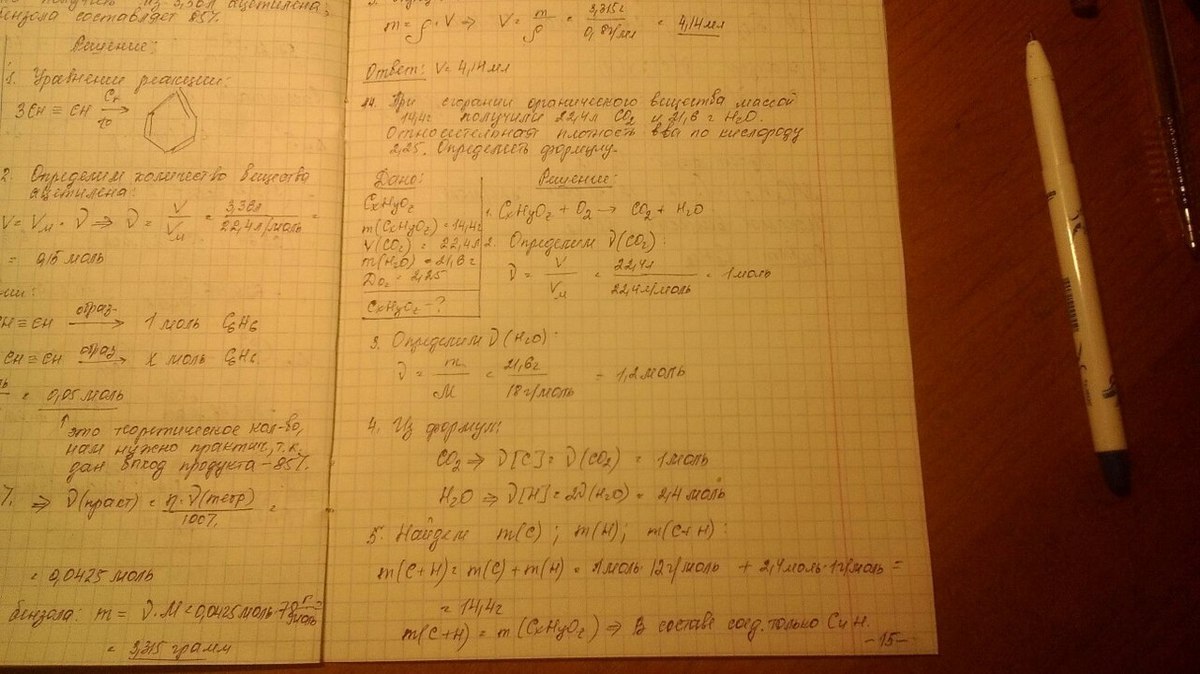 бензола составляет 85%.
Решение:
1. Уравнение реакции:
3CH ≡ CH
2. Определим количество вещества
ацетилена:
V = Vм · ν ⇒ ν = V/Vм = 3,36л/22,4л/моль =
= 0,15 моль
CH ≡ CH образ. → 1 моль C6H6
CH ≡ CH образ. → x моль C6H6
= 0,05 моль
↑ это теоретическое кол-во,
нам нужно практич., т.к.
дан выход продукта - 85%.
⇒ ν(практ) = η·ν(теор)/100% =
= 0,0425 моль
бензола: m = ν·M = 0,0425моль·78г/моль
= 3,315 грамм
m = ρ·V ⇒ V = m/ρ = 3,315г/0,8г/мл = 4,14мл
Ответ: V = 4,14мл
При сгорании органического вещества массой
14,4г получили 22,4л CO2 и 21,6г H2O.
Относительная плотность в-ва по кислороду
2,25. Определить формулу.
Дано:
CxHyOz
m(CxHyOz) = 14,4г
V(CO2) = 22,4л
m(H2O) = 21,6г
DO2 = 2,25
CxHyOz - ?
Решение:
1. CxHyOz + O2 → CO2 + H2O
2. Определим ν(CO2):
ν = V/Vм = 22,4л/22,4л/моль = 1моль
3. Определим ν(H2O)
ν = m/M = 21,6г/18г/моль = 1,2моль
4. Из формул:
CO2 ⇒ ν[C] = ν(CO2) = 1моль
H2O ⇒ ν[H] = 2ν(H2O) = 2,4моль
5. Найдем m(C); m(H); m(C+H):
m(C+H) = m(C) + m(H) = 1моль·12г/моль + 2,4моль·1г/моль =
= 14,4г
m(C+H) = m(CxHyOz) ⇒ В составе соед. только C и H.
-15-